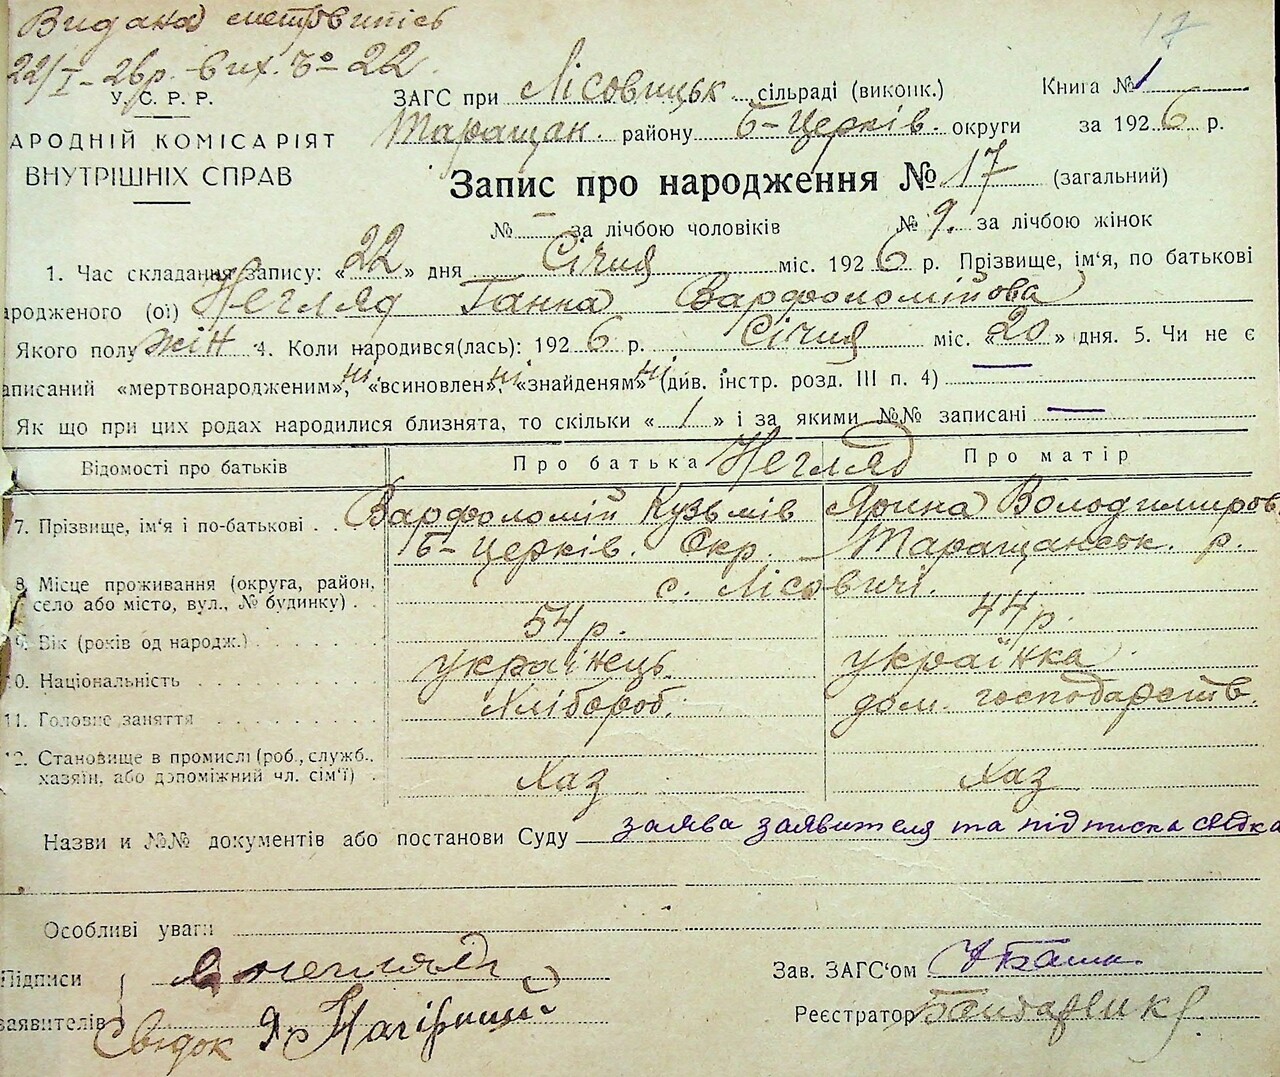 Видана метрвипісь 17
22/I-26р. вих. ч° 22.
У. С. Р. Р. ЗАГС при Лісовицьк сільраді (виконк.) Книга № 1
АРОДНІЙ КОМІСАРІЯТ Таращан. району Б-Церків. округи за 1926 р.
ВНУТРІШНІХ СПРАВ
Запис про народження № 17 (загальний)
№ - за лічбою чоловіків № 9. за лічбою жінок
1. Час складання запису: «22» дня Січня міс. 1926 р. Прізвище, ім'я, по батькові
ародженого (ої) Негляд Ганна Варфоломійова
Якого полу жін 4. Коли народився(лась): 1926 р. Січня міс. «20» дня. 5. Чи не є
аписаний «мертвонародженим», ні «всиновлен», ні «знайденям» ні (див. інстр. розд. III п. 4)
Як що при цих родах народилися близнята, то скільки «1» і за якими №№ записані —
Відомості про батьків Про батька Негляд Про матір
7. Прізвище, ім'я і по-батькові . . Варфоломій Кузьмів Ярина Володимиров.
Б-Церків. Окр. Таращанськ. р.
8. Місце проживання (округа, район, село або місто, вул., № будинку) . . с. Лісовичі.
9. Вік (років од народж.) 54 р. 44 р.
10. Національність українець українка
11. Головне заняття Хлібороб. дом. господарств.
12. Становище в промислі (роб., служб., хазяїн, або допоміжний чл. сім'ї) . Хаз Хаз
Назви и №№ документів або постанови Суду заява заявителя та підписка свідка
Особливі уваги
Підписи В Негляд Зав. ЗАГС'ом
заявителів Свідок Я. Реєстратор